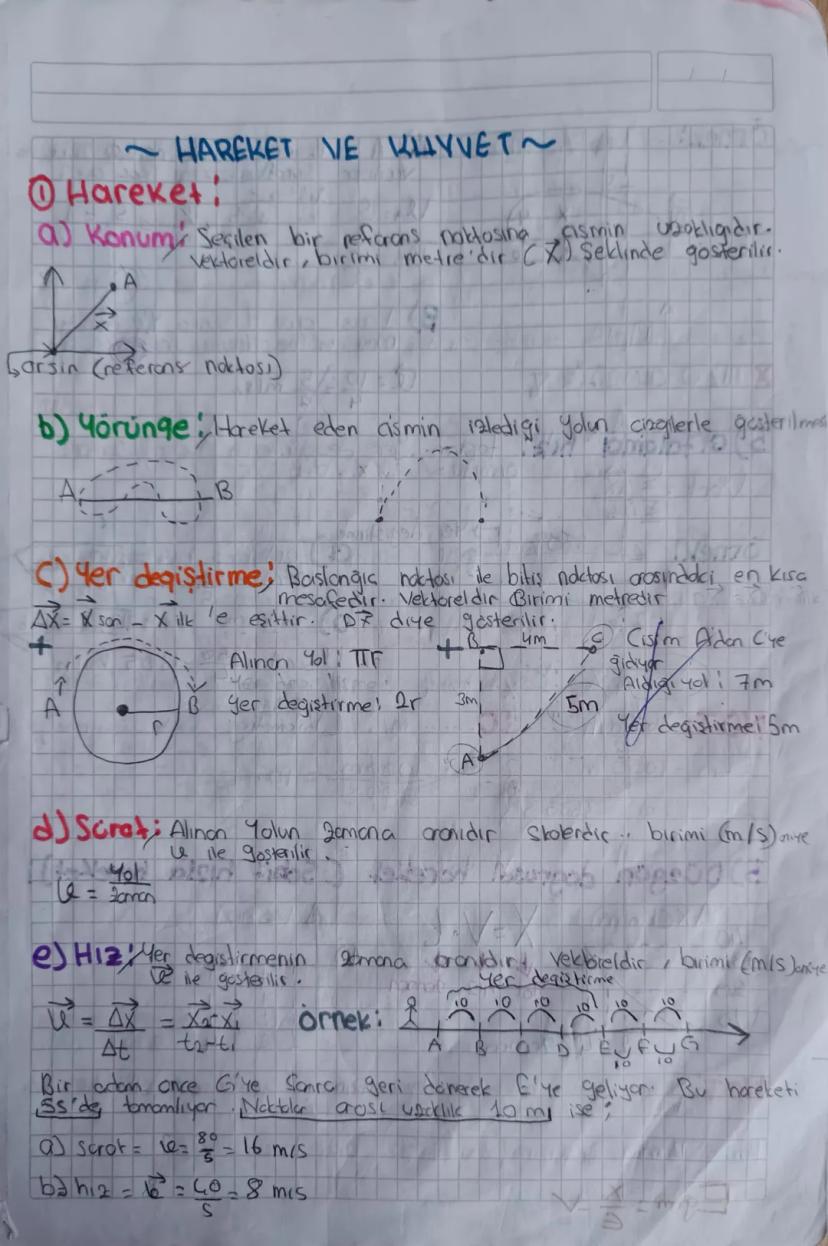 ~ HAREKET VE KUVVET ~
① Hareket:
a) Konum; Seçilen bir referans noktasına cismin uzaklığıdır.
Vektöreldir, birimi metre'dir (X) Şeklinde gösterilir.
A
X
orjin (referans noktası)
b) Yörünge; Hareket eden cismin izlediği yolun çizgilerle gösterilmesi
A B
c) Yer değiştirme; Başlangıç noktası ile bitiş noktası arasındaki en kısa
mesafedir. Vektöreldir Birimi metredir
ΔX = X son - X ilk 'e eşittir. diye gösterilir.
+ A B r
Alınan Yol: πr
Yer değiştirme: 2r
+ B 4m C
3m 5m
A
Cisim A'dan C'ye
gidiyor
Aldığı yol: 7m
Yer değiştirme: 5m
d) Sürat; Alınan Yolun zamana oranıdır Skalerdir.. birimi (m/s)
ile gösterilir.
ϑ = Yol / zaman
e) Hız; Yer değiştirmenin zamana oranıdır, vektöreldir, birimi (m/s)
ϑ ile gösterilir.
yer değiştirme
ϑ = ΔX / Δt = X₂-X₁ / t₂-t₁
Örnek: 10 10 10 10 10 10
A B C D E F G
10 10
Bir adam önce G'ye sonra geri dönerek E'ye geliyor. Bu hareketi
5s'de tamamlıyor. Noktalar arası uzaklık 10 m ise;
a) sürat = ϑ = 80/5 = 16 m/s
b) hız = ϑ = 40/5 = 8 m/s